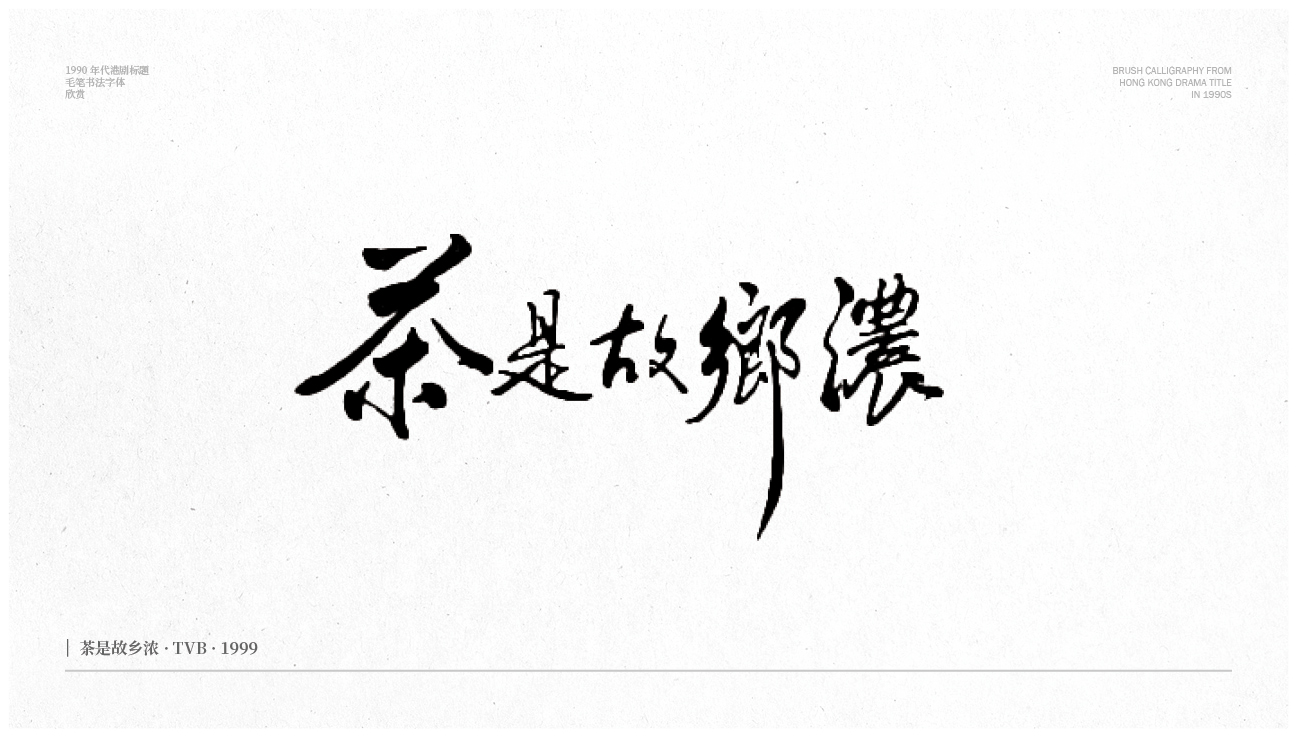 1990 年代港剧标题
毛笔书法字体
欣赏
BRUSH CALLIGRAPHY FROM
HONG KONG DRAMA TITLE
IN 1990S
茶是故鄉濃
茶是故乡浓 · TVB · 1999